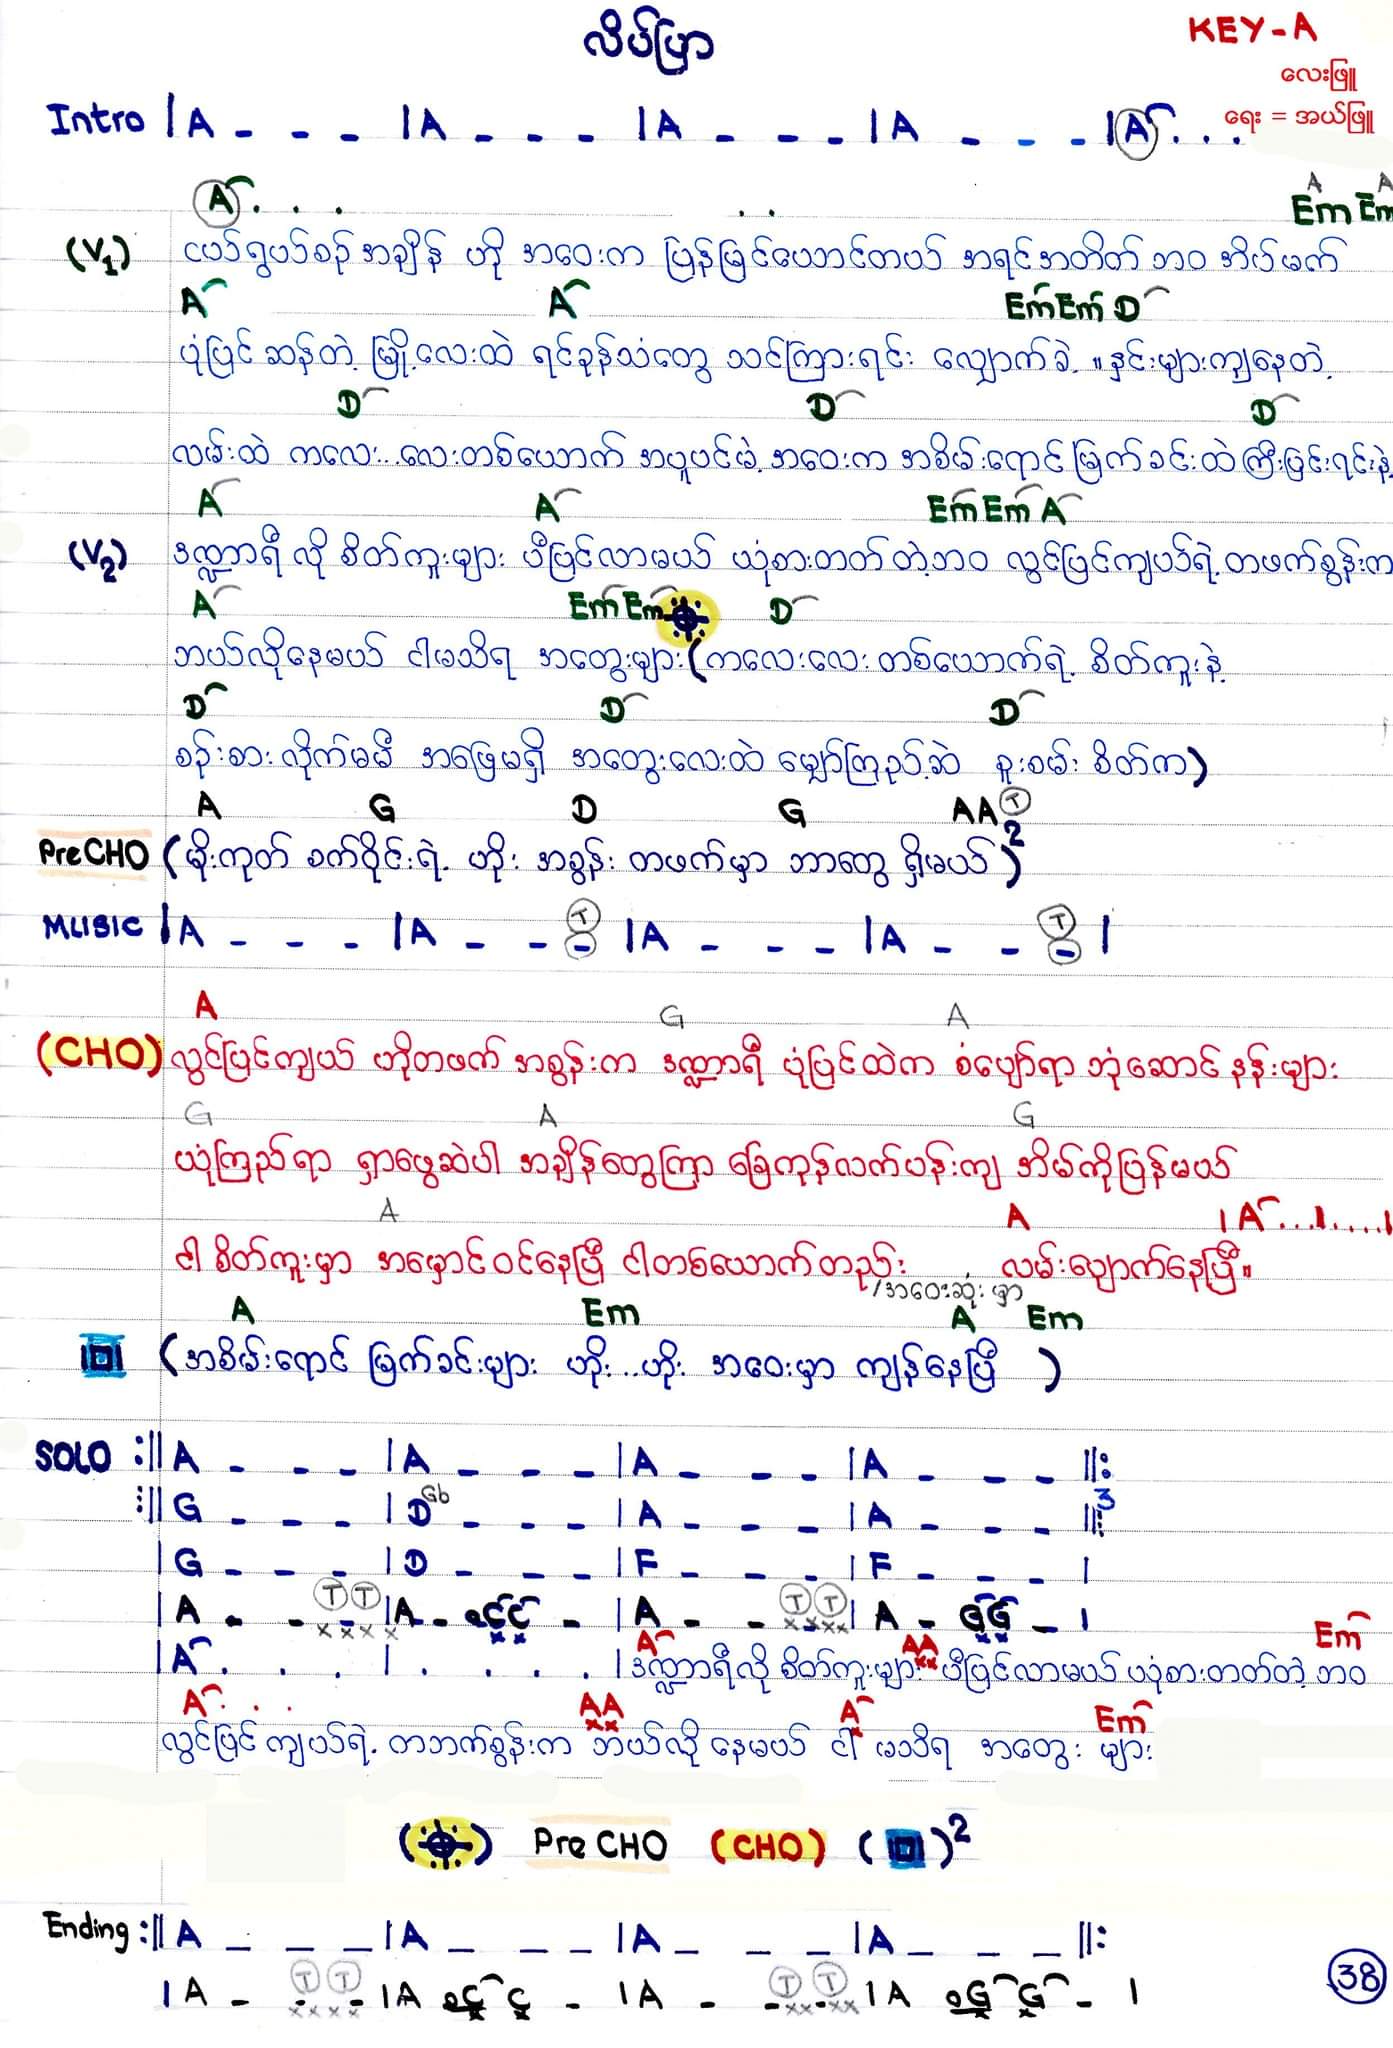 လိပ်ပြာ
KEY - A
လေးဖြူ
ရေး = အယ်ဖြူ
Intro | A - - - | A - - - | A - - - | A - - - | A . . .
A . . . . . Em A Em A
(V1) ငယ်ရွယ်စဉ် အချိန် ဟို အဝေးက ပြန်မြင်ယောင်တယ် အရင်အတိတ် ဘဝ အိပ်မက်
A A Em Em D
ပုံပြင် ဆန်တဲ့ မြို့လေးထဲ ရင်ခုန်သံတွေ သင်ကြားရင်း လျှောက်ခဲ့ ။ နှင်းများကျနေတဲ့
D D D
လမ်းထဲ ကလေး..လေးတစ်ယောက် အပူပင်မဲ့ အဝေးက အစိမ်းရောင် မြက်ခင်းထဲ ကြီးပြင်းရင်းနဲ့
A A Em Em A
(V2) ဒဏ္ဍာရီ လို စိတ်ကူးများ ပီပြင်လာမယ် ယုံစားတတ် တဲ့ဘဝ လွင်ပြင်ကျယ်ရဲ့ တဖက်စွန်းက
A Em Em D
ဘယ်လိုနေမယ် ငါမသိရ အတွေးများ (ကလေးလေး တစ်ယောက်ရဲ့ စိတ်ကူးနဲ့
D D D
စဉ်းစား လိုက်မမီ အဖြေမရှိ အတွေးလေးထဲ မျှော်ကြည့်ဆဲ စူးစမ်း စိတ်က)
A G D G A A T
PreCHO (မိုးကုတ် စက်ဝိုင်းရဲ့ ဟိုး အစွန်း တဖက်မှာ ဘာတွေ ရှိမယ်)2
MUSIC | A - - - | A - - T - | A - - - | A - - T - |
A G A
(CHO) လွင်ပြင်ကျယ် ဟိုတဖက် အစွန်းက ဒဏ္ဍာရီ ပုံပြင်ထဲက စံပျော်ရာ ဘုံဆောင် နန်းများ
G A G
ယုံကြည်ရာ ရှာဖွေဆဲပါ အချိန်တွေကြာ ခြေကုန်လက်ပန်းကျ အိမ်ကိုပြန်မယ်
A A | A . . . | . . . . |
ငါ စိတ်ကူးမှာ အမှောင်ဝင်နေပြီ ငါတစ်ယောက်တည်း လမ်းပျောက်နေပြီ။
/အဝေးဆုံး မှာ
A Em A Em
(အစိမ်းရောင် မြက်ခင်းများ ဟိုး..ဟိုး အဝေးမှာ ကျန်နေပြီ )
SOLO :|| A - - - | A - - - | A - - - | A - - - ||:
:|| G - - - | D Gb - - - | A - - - | A - - - ||: 3
| G - - - | D - - - | F - - - | F - - - |
| A - - T T - | A - G G - | A - - T T - | A - G G - |
A A A Em
| A . . . | . . . . | ဒဏ္ဍာရီလို စိတ်ကူးများ ပီပြင်လာမယ် ယုံစားတတ်တဲ့ ဘဝ
A . . . A A A Em
လွင်ပြင် ကျယ်ရဲ့ တဘက်စွန်းက ဘယ်လို နေမယ် ငါ မသိရ အတွေး များ
( ) Pre CHO (CHO) ( )2
Ending :|| A - - - | A - - - | A - - - | A - - - ||:
| A - T T - | A G G - | A - - T T - | A G G - |
38